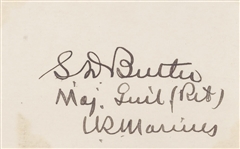 S D Butler
Maj. Genl (Ret)
U.S. Marines